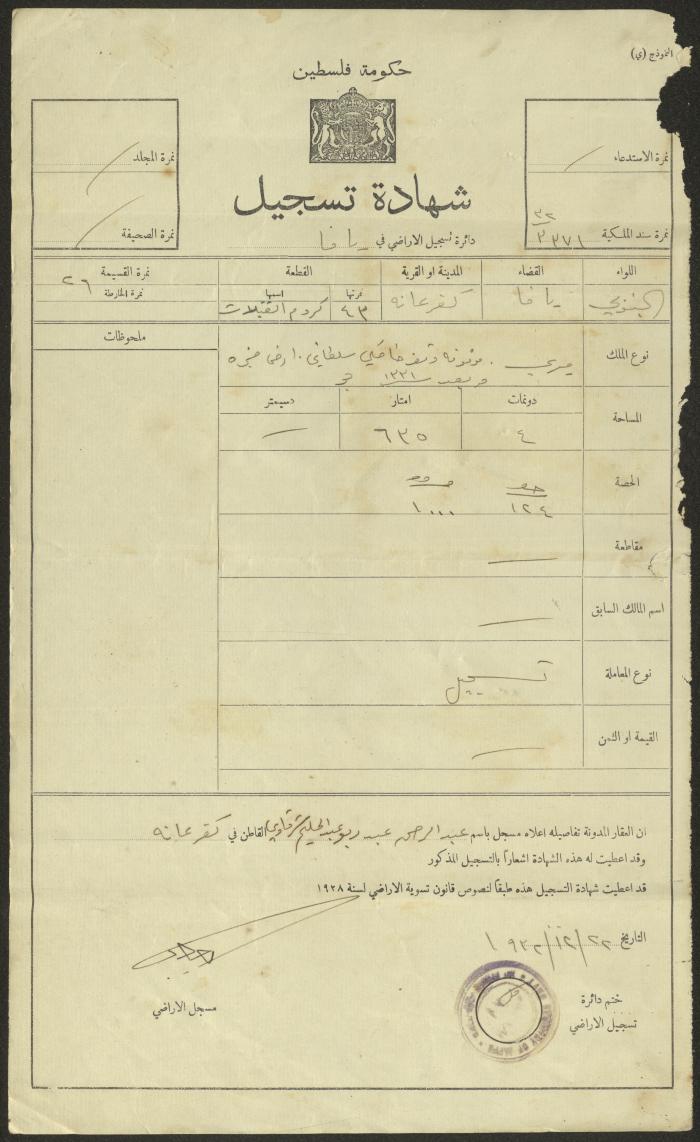 النموذج (ي)
حكومة فلسطين
نمرة الاستدعاء /
نمرة المجلد /
شهادة تسجيل
نمرة سند الملكية ٣٣٧١ / ٣٢
نمرة الصحيفة /
دائرة تسجيل الاراضي في يافا
اللواء القضاء المدينة او القرية القطعة نمرة القسيمة ٢٦
نمرتها اسمها نمرة الخارطة
الجنوبي يافا كفرعانه ٤٣ كردم القبلات
ملحوظات
نوع الملك ميري سلطاني
سنة ١٣٣١
دونمات امتار دسيمتر
المساحة ٤ ٦٣٥ —
الحصة
١٢٤ ١٠٠٠
مقاطعة —
اسم المالك السابق —
نوع المعاملة تسجيل
القيمة او الثمن —
ان العقار المدونة تفاصيله اعلاه مسجل باسم عبد الرحمن عبد ربو عبد الحليم شرقاوي القاطن في كفرعانه
وقد اعطيت له هذه الشهادة اشعاراً بالتسجيل المذكور
قد اعطيت شهادة التسجيل هذه طبقاً لنصوص قانون تسوية الاراضي لسنة ١٩٢٨
التاريخ ٢٢/١٢/١٩٣٢
ختم دائرة
تسجيل الاراضي
مسجل الاراضي
LAND REGISTRY OF JAFFA